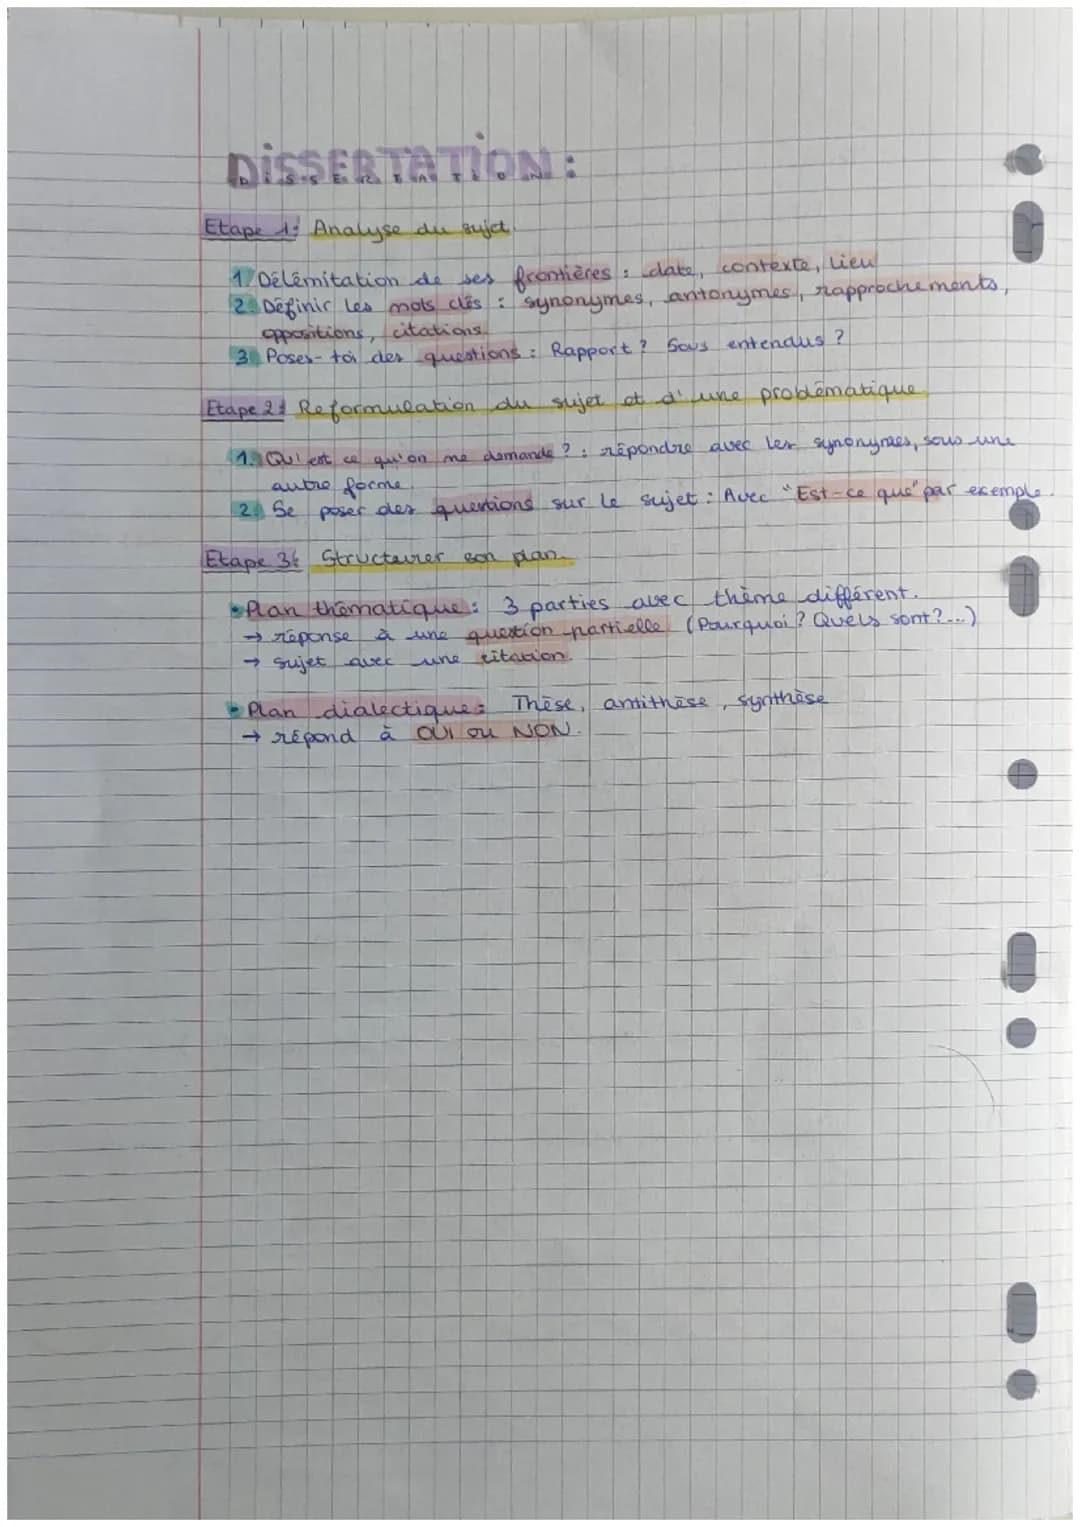 DiSSERTATION :
Etape 1: Analyse du sujet.
1. Délémitation de ses frontières : date, contexte, lieu
2. Définir les mots clés : synonymes, antonymes, rapprochements,
oppositions, citations.
3. Poses-toi des questions : Rapport ? Sous entendus ?
Etape 2: Reformulation du sujet et d'une problématique.
1. Qu'est ce qu'on me demande ? : répondre avec les synonymes, sous une
autre forme.
2. Se poser des questions sur le sujet : Avec "Est-ce que" par exemple.
Etape 3: Structurer son plan.
• Plan thématique : 3 parties avec thème différent.
→ réponse à une question partielle (Pourquoi ? Quels sont ?...)
→ sujet avec une citation.
• Plan dialectique : Thèse, antithèse, synthèse
→ répond à OUI ou NON.